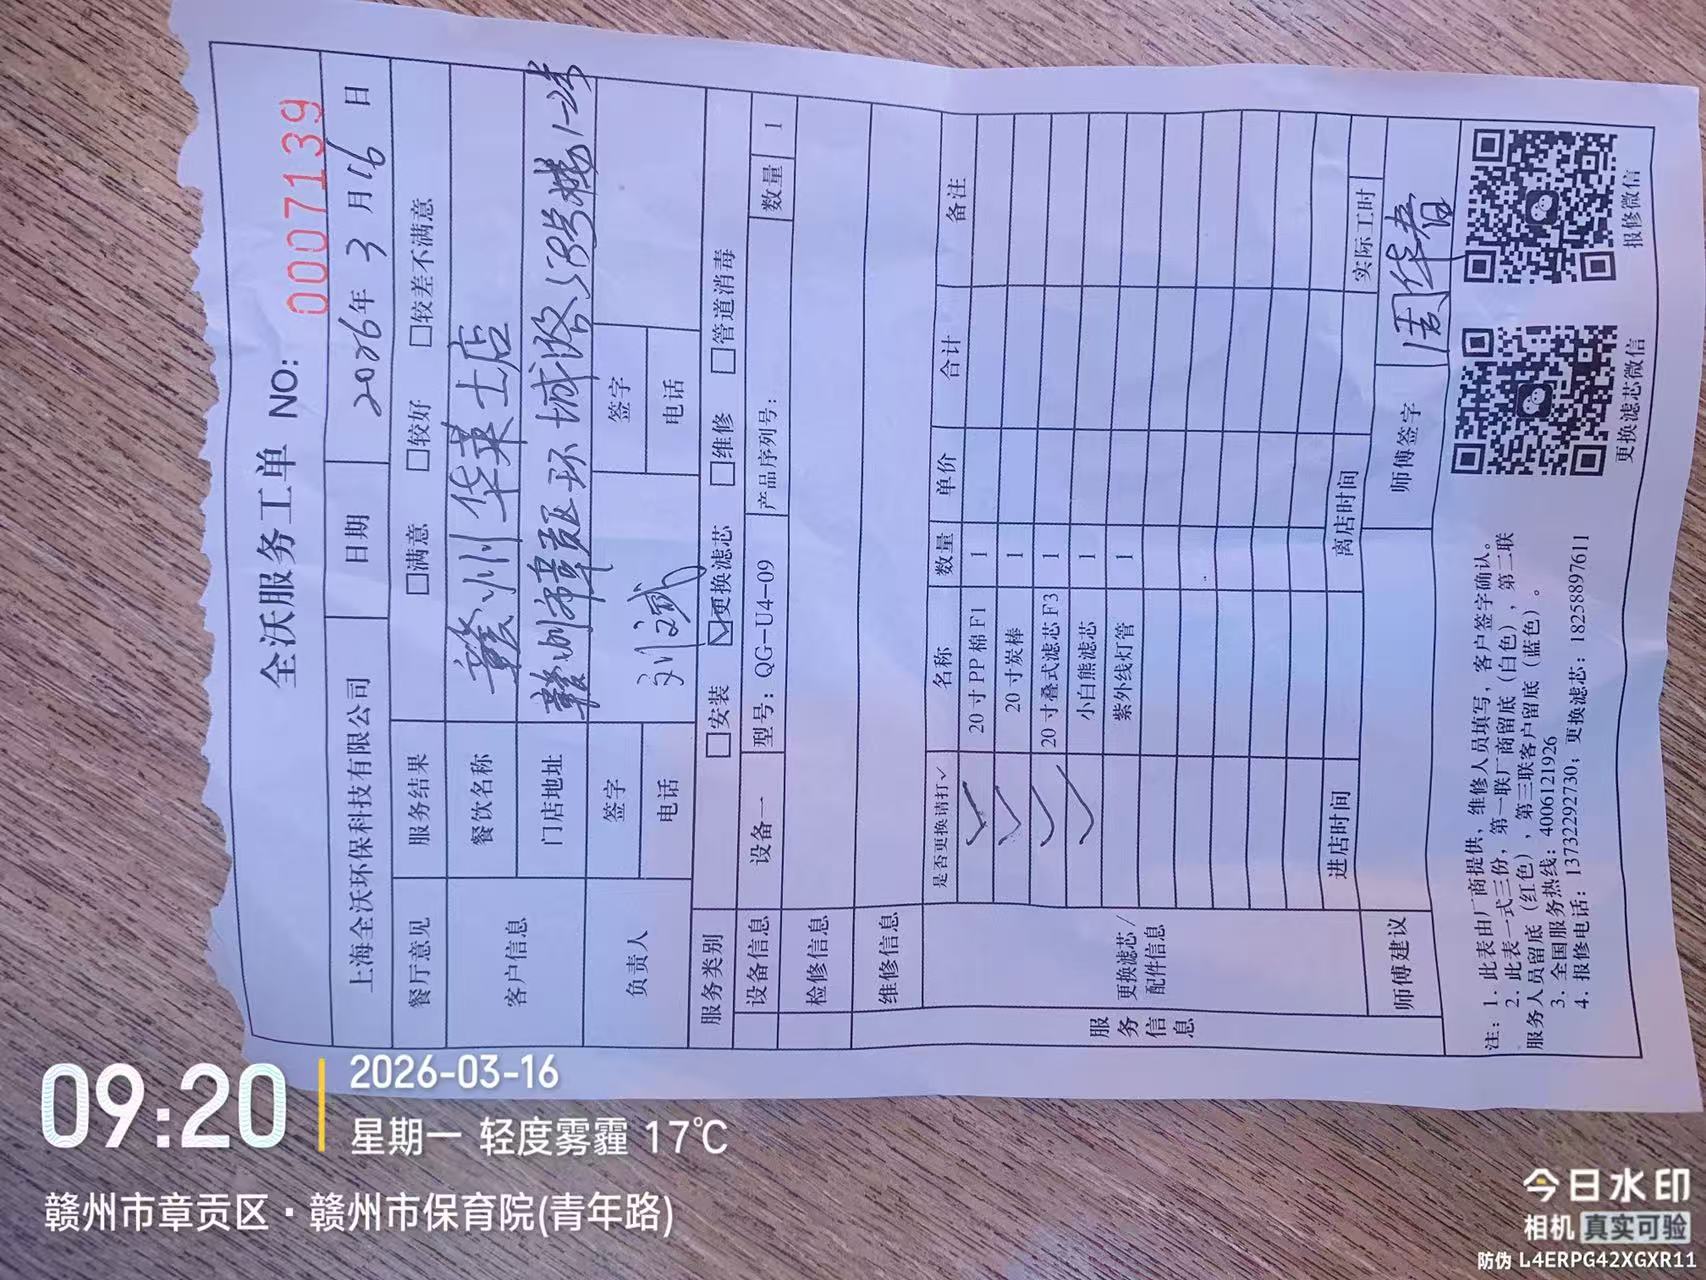 全沃服务工单 NO: 0007139
上海全沃环保科技有限公司 日期 2026年 3 月 16 日
餐厅意见 服务结果 □满意 □较好 □较差不满意
客户信息 餐饮名称 赣州华莱士店
门店地址 赣州市章贡区环城路58号楼1-2号
负责人 签字 刘斌 签字
电话 电话
服务类别 □安装 ☑更换滤芯 □维修 □管道消毒
设备信息 设备一 型号：QG-U4-09 产品序列号： 数量 1
检修信息
维修信息
服务信息 更换滤芯/配件信息
是否更换请打✓ 名称 数量 单价 合计 备注
✓ 20寸PP棉F1 1
✓ 20寸炭棒 1
✓ 20寸叠式滤芯F3 1
✓ 小白熊滤芯 1
紫外线灯管 1
进店时间 离店时间 实际工时
师傅建议 师傅签字 周华春
注：1. 此表由厂商提供，维修人员填写，客户签字确认。
2. 此表一式三份，第一联厂商留底（白色），第二联
服务人员留底（红色），第三联客户留底（蓝色）。
3. 全国服务热线：4006121926
4. 报修电话：13732292730；更换滤芯：18258897611
更换滤芯微信 报修微信
09:20
2026-03-16
星期一 轻度雾霾 17℃
赣州市章贡区·赣州市保育院(青年路)
今日水印
相机 真实可验
防伪 L4ERPG42XGXR11